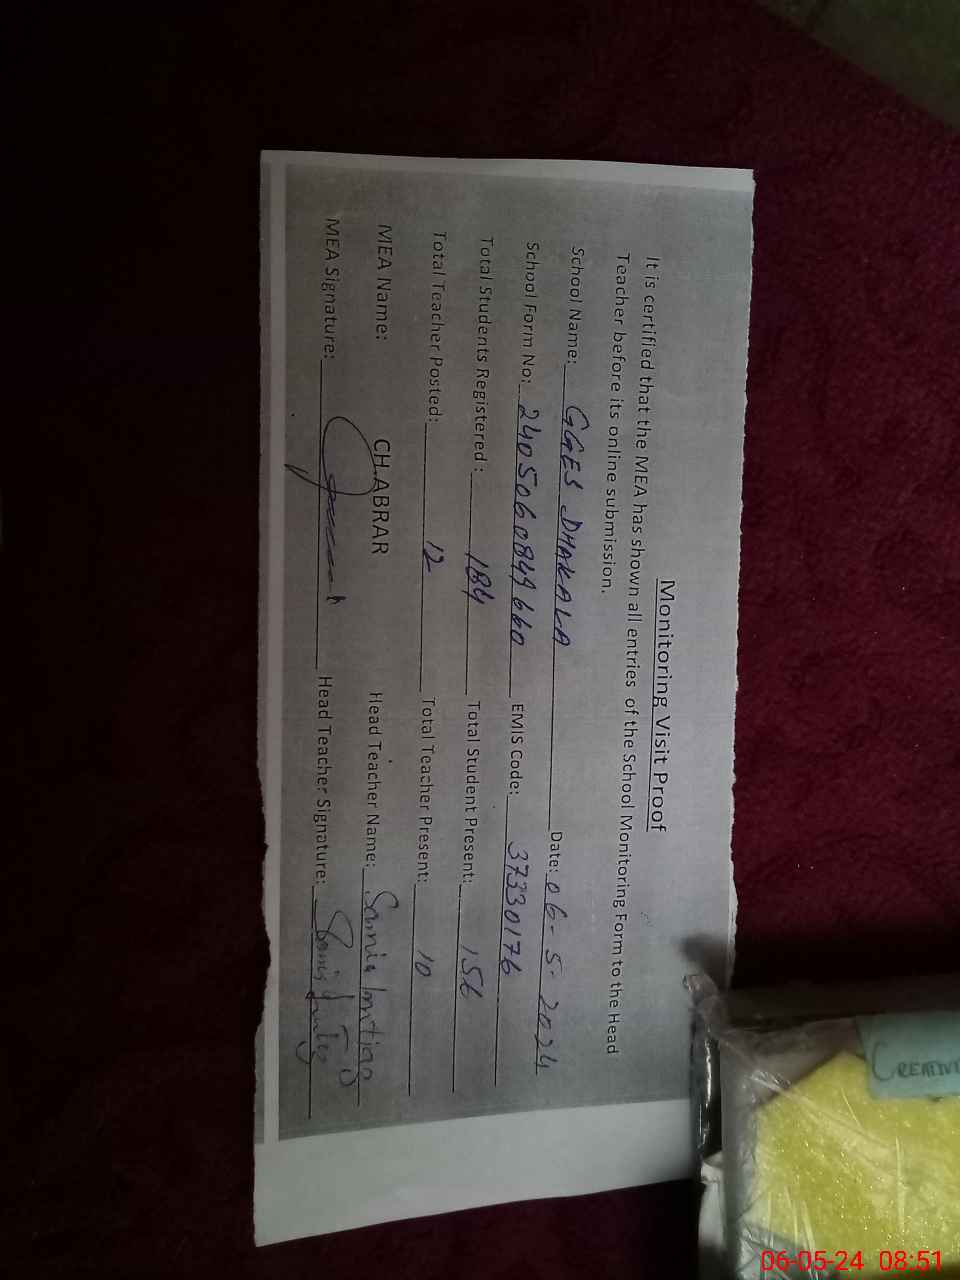 Monitoring Visit Proof
It is certified that the MEA has shown all entries of the School Monitoring Form to the Head
Teacher before its online submission.
School Name: GGES DHAKALA Date: 06-5-2024
School Form No: 2405060849660 EMIS Code: 37330176
Total Students Registered : 184 Total Student Present: 156
Total Teacher Posted: 12 Total Teacher Present: 10
MEA Name: CH.ABRAR Head Teacher Name: Samia Imtiaz
MEA Signature: Head Teacher Signature: Samia Imtiaz
CREATIVI
06-05-24 08:51